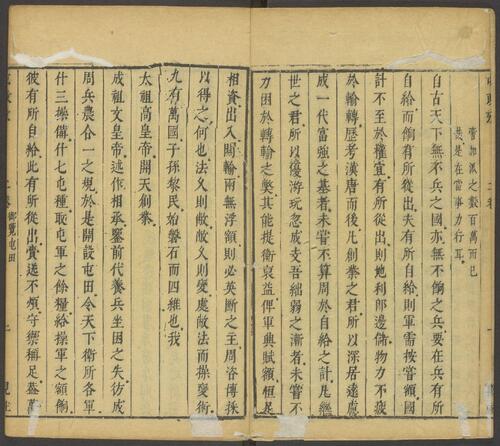 當加派之數百萬而已
是在當事力行耳
自古天下無不兵之國亦無不餉之兵要在兵有所
自給而餉有所從出夫有所自給則軍需按嘗額國
計不至於權宜有所從出則地利卽邊儲物力不疲
於輪轉歷考漢唐而後凡創業之君所以深居遠慮
成一代富強之基者未嘗不算周於自給之計凡繼
世之君所以優游玩忽成支吾絀弱之漸者未嘗不
刀困於轉輸之獘其能挹衡裒益俾軍興賦額恒足
相資出入間輸兩無浮額則必英斷之主周咨傳採
以得之何也法久則敝敝久則變處敝法而操變術
九有萬國子孫黎民始磐石而四維也我
太祖高皇帝開天創業
成祖文皇帝述作相承鑒前代養兵坐困之失彷成
周兵農合一之規於是開設屯田令天下衛所各軍
什三操備什七屯種取屯軍之餘糧給操軍之額餉
彼有所自給此有所從出賞送不煩守禦稱足蓋萬
二卷
御覽屯田